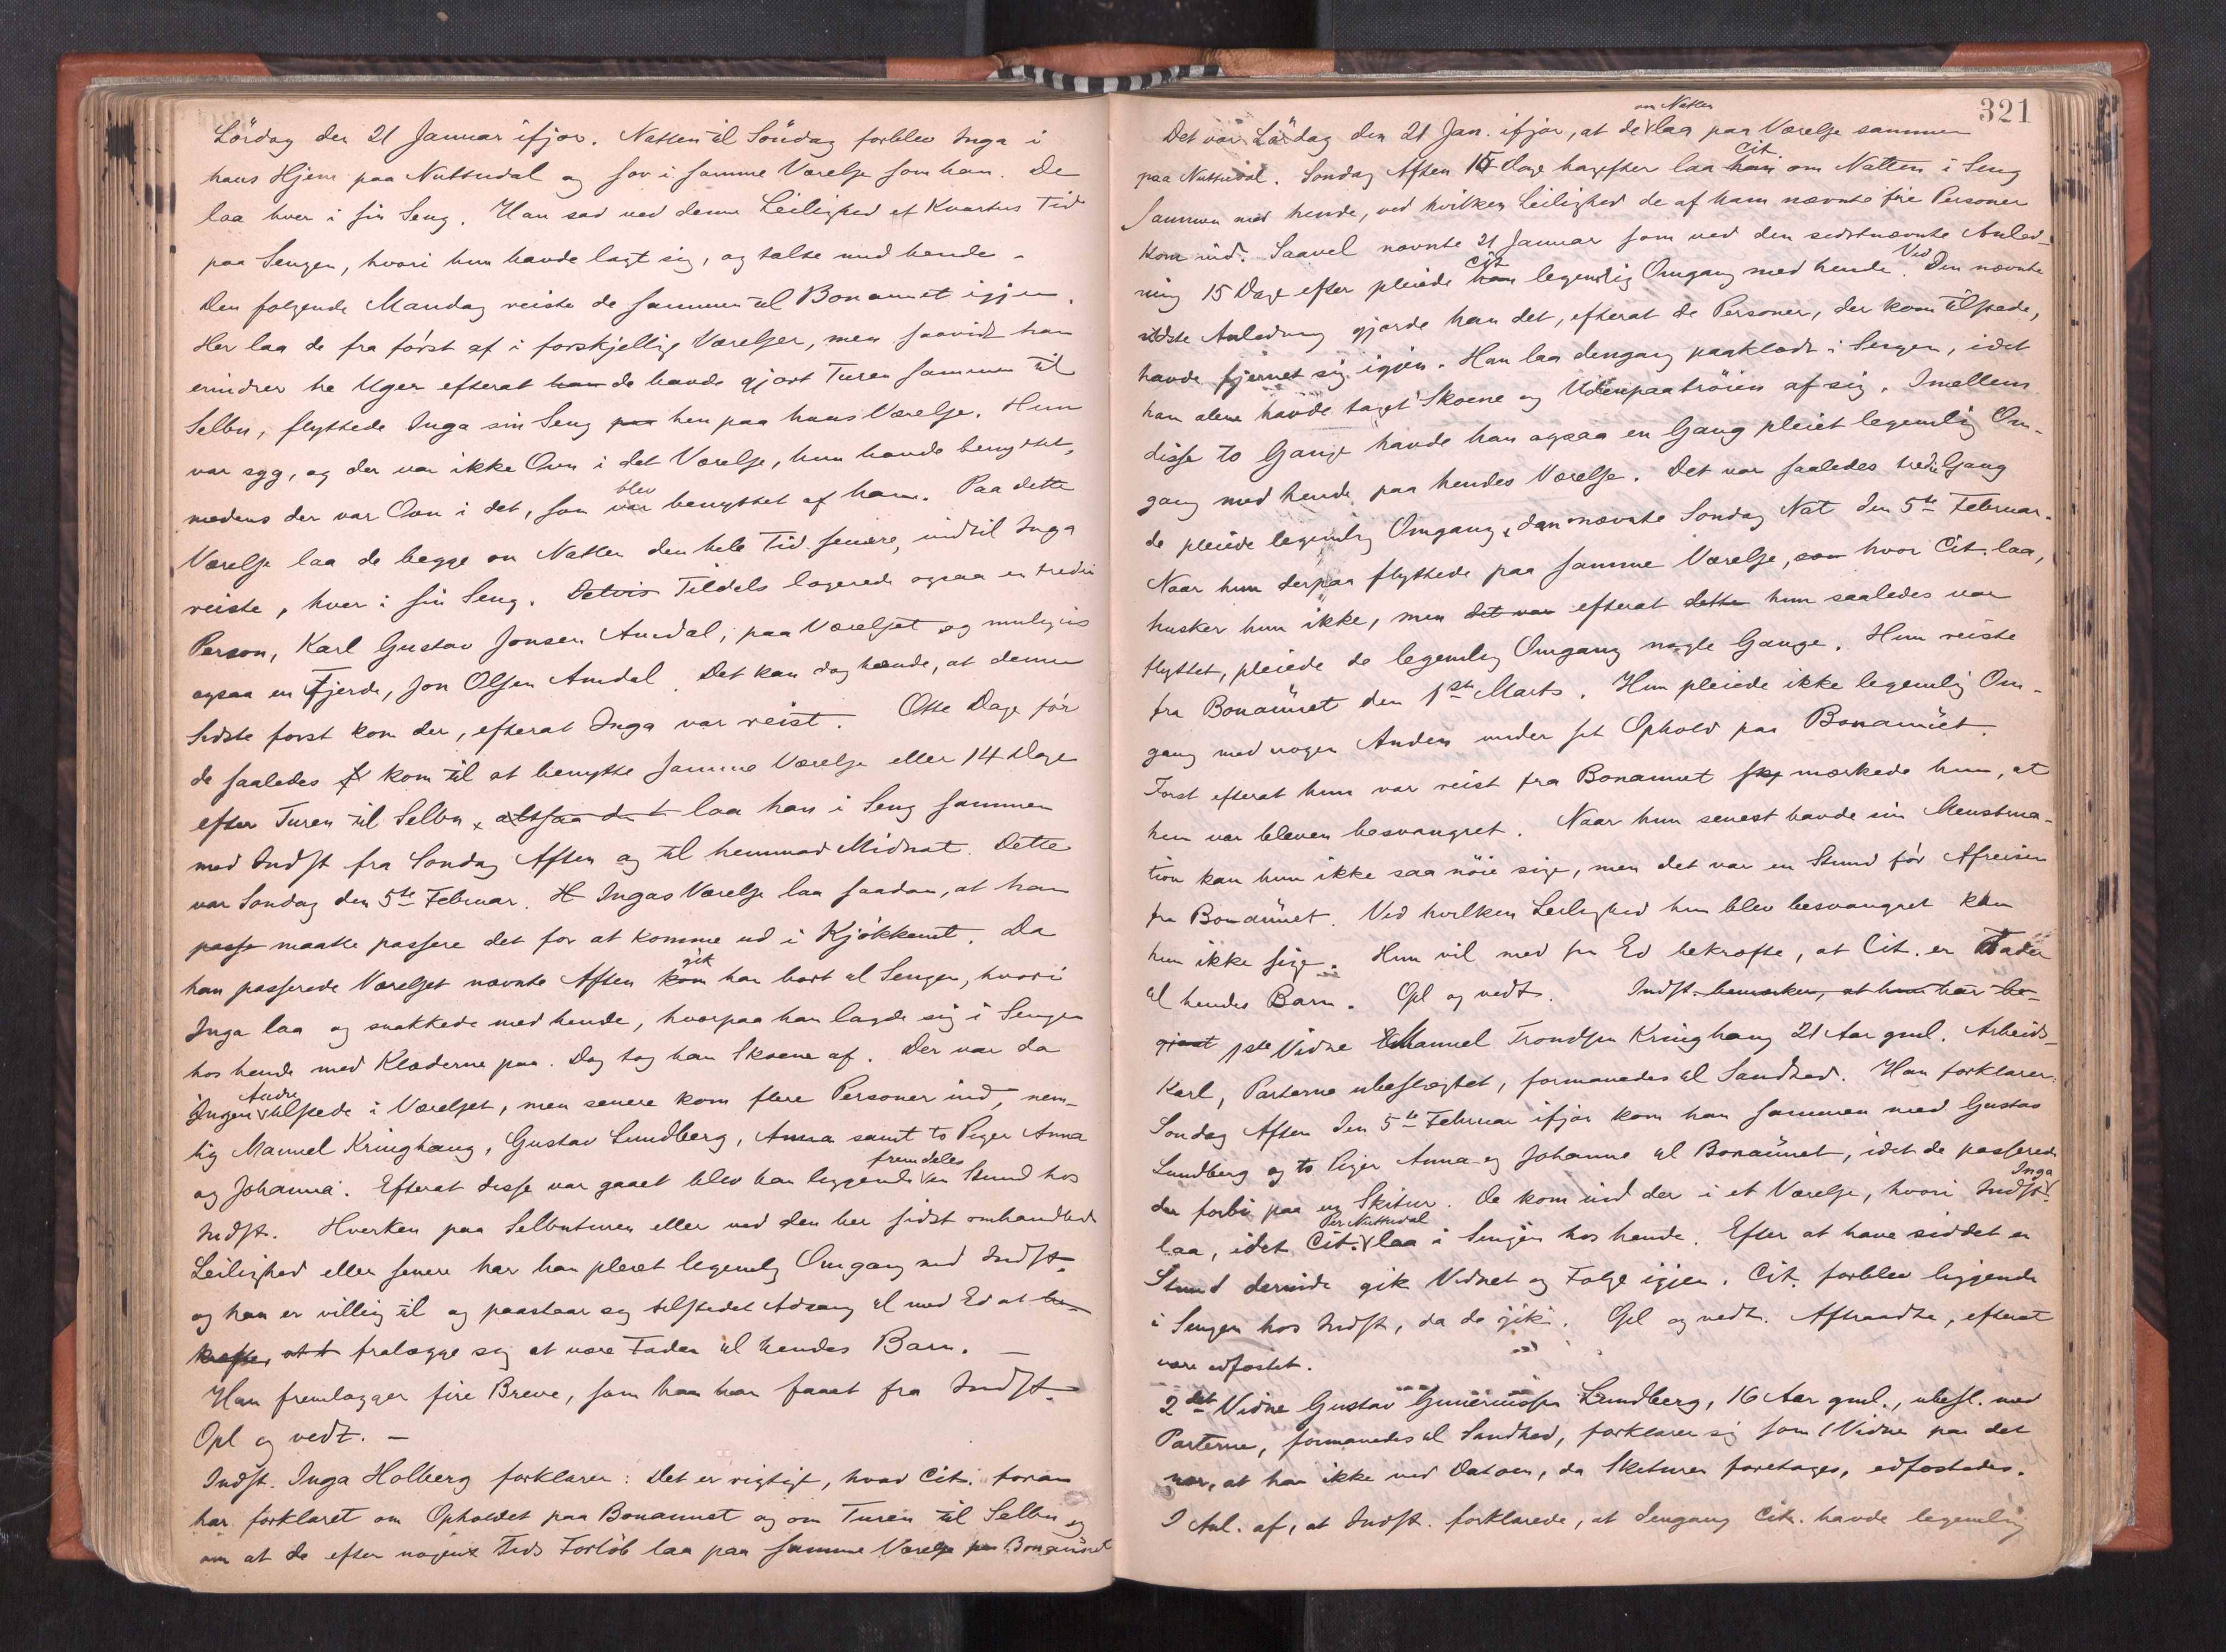 Lördag den 21 Januar ifjor. Natten til Söndag forblev Inga i
hans Hjem paa Nuttudal og sov i samme Værelse som han. De
laa hver i sin Seng. Han sad ved denne Leilighed et Kvarters Tid
paa Sengen, hvori hun havde lagt sig, og talte med hende.
Den følgende Mandag reiste de sammen til Bonaunet igjen.
Her laa de fra først af i forskjellige Værelser, men saavidt han
erindrer tre Uger efterat han de havde gjort Turen sammen til
Selbu, flyttede Inga sin Seng paa hen paa hans Værelse. Hun
var syg, og der var ikke Ovn i det Værelse, hun havde benyttet,
medens der var Ovn i det, som var blev benyttet af ham. Paa dette
Værelse laa de begge om Natten den hele Tid senere, indtil Inga
reiste, hver i sin Seng. Delvis Tildels logerede ogsaa en tredie
Person, Karl Gustav Jonsen Amdal, paa Værelset og muligvis
ogsaa en Fjerde, Jon Olsen Amdal. Det kan dog hænde, at denne
Sidste først kom der, efterat Inga var reist. Otte Dage før
de saaledes kom til at benytte samme Værelse eller 14 Dage
efter Turen til Selbu altsaa det laa han i Seng sammen
med Indst fra Søndag Aften og til henimod Midnat. Dette
var Søndag den 5te Februar. H Ingas Værelse laa saadan, at han
passe maatte passere det for at komme ud i Kjøkkenet. Da
han passerede Værelset nævnte Aften kom gik han bort til Sengen, hvori
Inga laa og snakkede med hende, hvorpaa han lagde sig i Sengen
hos hende med Klæderne paa. Dog tog han Skoene af. Der var da
Ingen Andre tilstede i Værelset, men senere kom flere Personer ind, nem-
lig Manuel Kringhaug, Gustav Lundberg, Anna samt to Piger Anna
og Johanna. Efterat disse var gaaet blev han liggende fremdeles en Stund hos
Indst. Hverken paa Selbuturen eller ved den her sidst omhandlede
Leilighed eller senere har han pleiet legemlig Omgang med Indst.
og han er villig til og paastaar sig tilstedet Adgang til med Ed at be-
kræfte, at fralægge sig at være Fader til hendes Barn. —
Han fremlægger fire Breve, som han har faaet fra Indst.
Opl og vedt. —
Indst. Inga Holberg forklarer: Det er rigtigt, hvad Cit. foran
har forklaret om Opholdet paa Bonaunet og om Turen til Selbu og
om at de efter nogens Tids Forløb laa paa samme Værelse paa Bonaunet
321
Det var Lördag den 21 Jan. ifjor, at de om Natten laa paa Værelse sammen
paa Nuttudal. Søndag Aften 15 Dage herefter laa han Cit om Natten i Seng
sammen med hende, ved hvilken Leilighed de af ham nævnte fire Personer
kom ind. Saavel nævnte 21 Januar som ved den sidstnævnte Anled-
ning 15 Dage efter pleiede han Cit legemlig Omgang med hende. Ved Den nævnte
sidste Anledning gjorde han det, efterat de Personer, der kom tilstede,
havde fjernet sig igjen. Han laa dengang paaklædt i Sengen, idet
han alene havde taget Skoene og Udenpaatrøien af sig. Imellem
disse to Gange havde han ogsaa en Gang pleiet legemlig Om-
gang med hende paa hendes Værelse. Det var saaledes tredie Gang
de pleiede legemlig Omgang, den nævnte Søndag Nat den 5te Februar.
Naar hun derpaa flyttede paa samme Værelse, som hvor Cit. laa,
husker hun ikke, men det var efterat dette hun saaledes var
flyttet, pleiede de legemlig Omgang nogle Gange. Hun reiste
fra Bonaunet den 1ste Marts. Hun pleiede ikke legemlig Om-
gang med nogen Anden under sit Ophold paa Bonaunet.
Først efterat hun var reist fra Bonaunet mærkede hun, at
hun var bleven besvangret. Naar hun senest havde sin Menstrua-
tion kan hun ikke saa nøie sige, men det var en Stund før Afreisen
fra Bonaunet. Ved hvilken Leilighed hun blev besvangret kan
hun ikke sige. Hun vil med sin Ed bekræfte, at Cit. er Fader
til hendes Barn. Opl og vedt. Indst. bemærker, at hun har be-
gjært 1ste Vidne Manuel Trondsen Kringhaug 21 Aar gml. Arbeids-
karl, Parterne ubeslægtet, formanedes til Sandhed. Han forklarer:
Søndag Aften den 5te Februar ifjor kom han sammen med Gustav
Lundberg og to Piger Anna og Johanna til Bonaunet, idet de passerede
der forbi paa en Skitur. De kom ind der i et Værelse, hvori Indst. Inga
laa, idet Cit. Per Nuttudal laa i Sengen hos hende. Efter at have siddet en
Stund derinde gik Vidnet og Følge igjen. Cit. forblev liggende
i Sengen hos Indst, da de gik. Opl og vedt. Aftraadte, efterat
være edfæstet.
2det Vidne Gustav Guneriussen Lundberg, 16 Aar gml., ubesl. med
Parterne, formanedes til Sandhed, forklarer sig som 1 Vidne paa det
nær, at han ikke ved Datoen, da Skituren foretoges, edfæstedes.
I Anl. af, at Indst. forklarede, at dengang Cit. havde legemlig